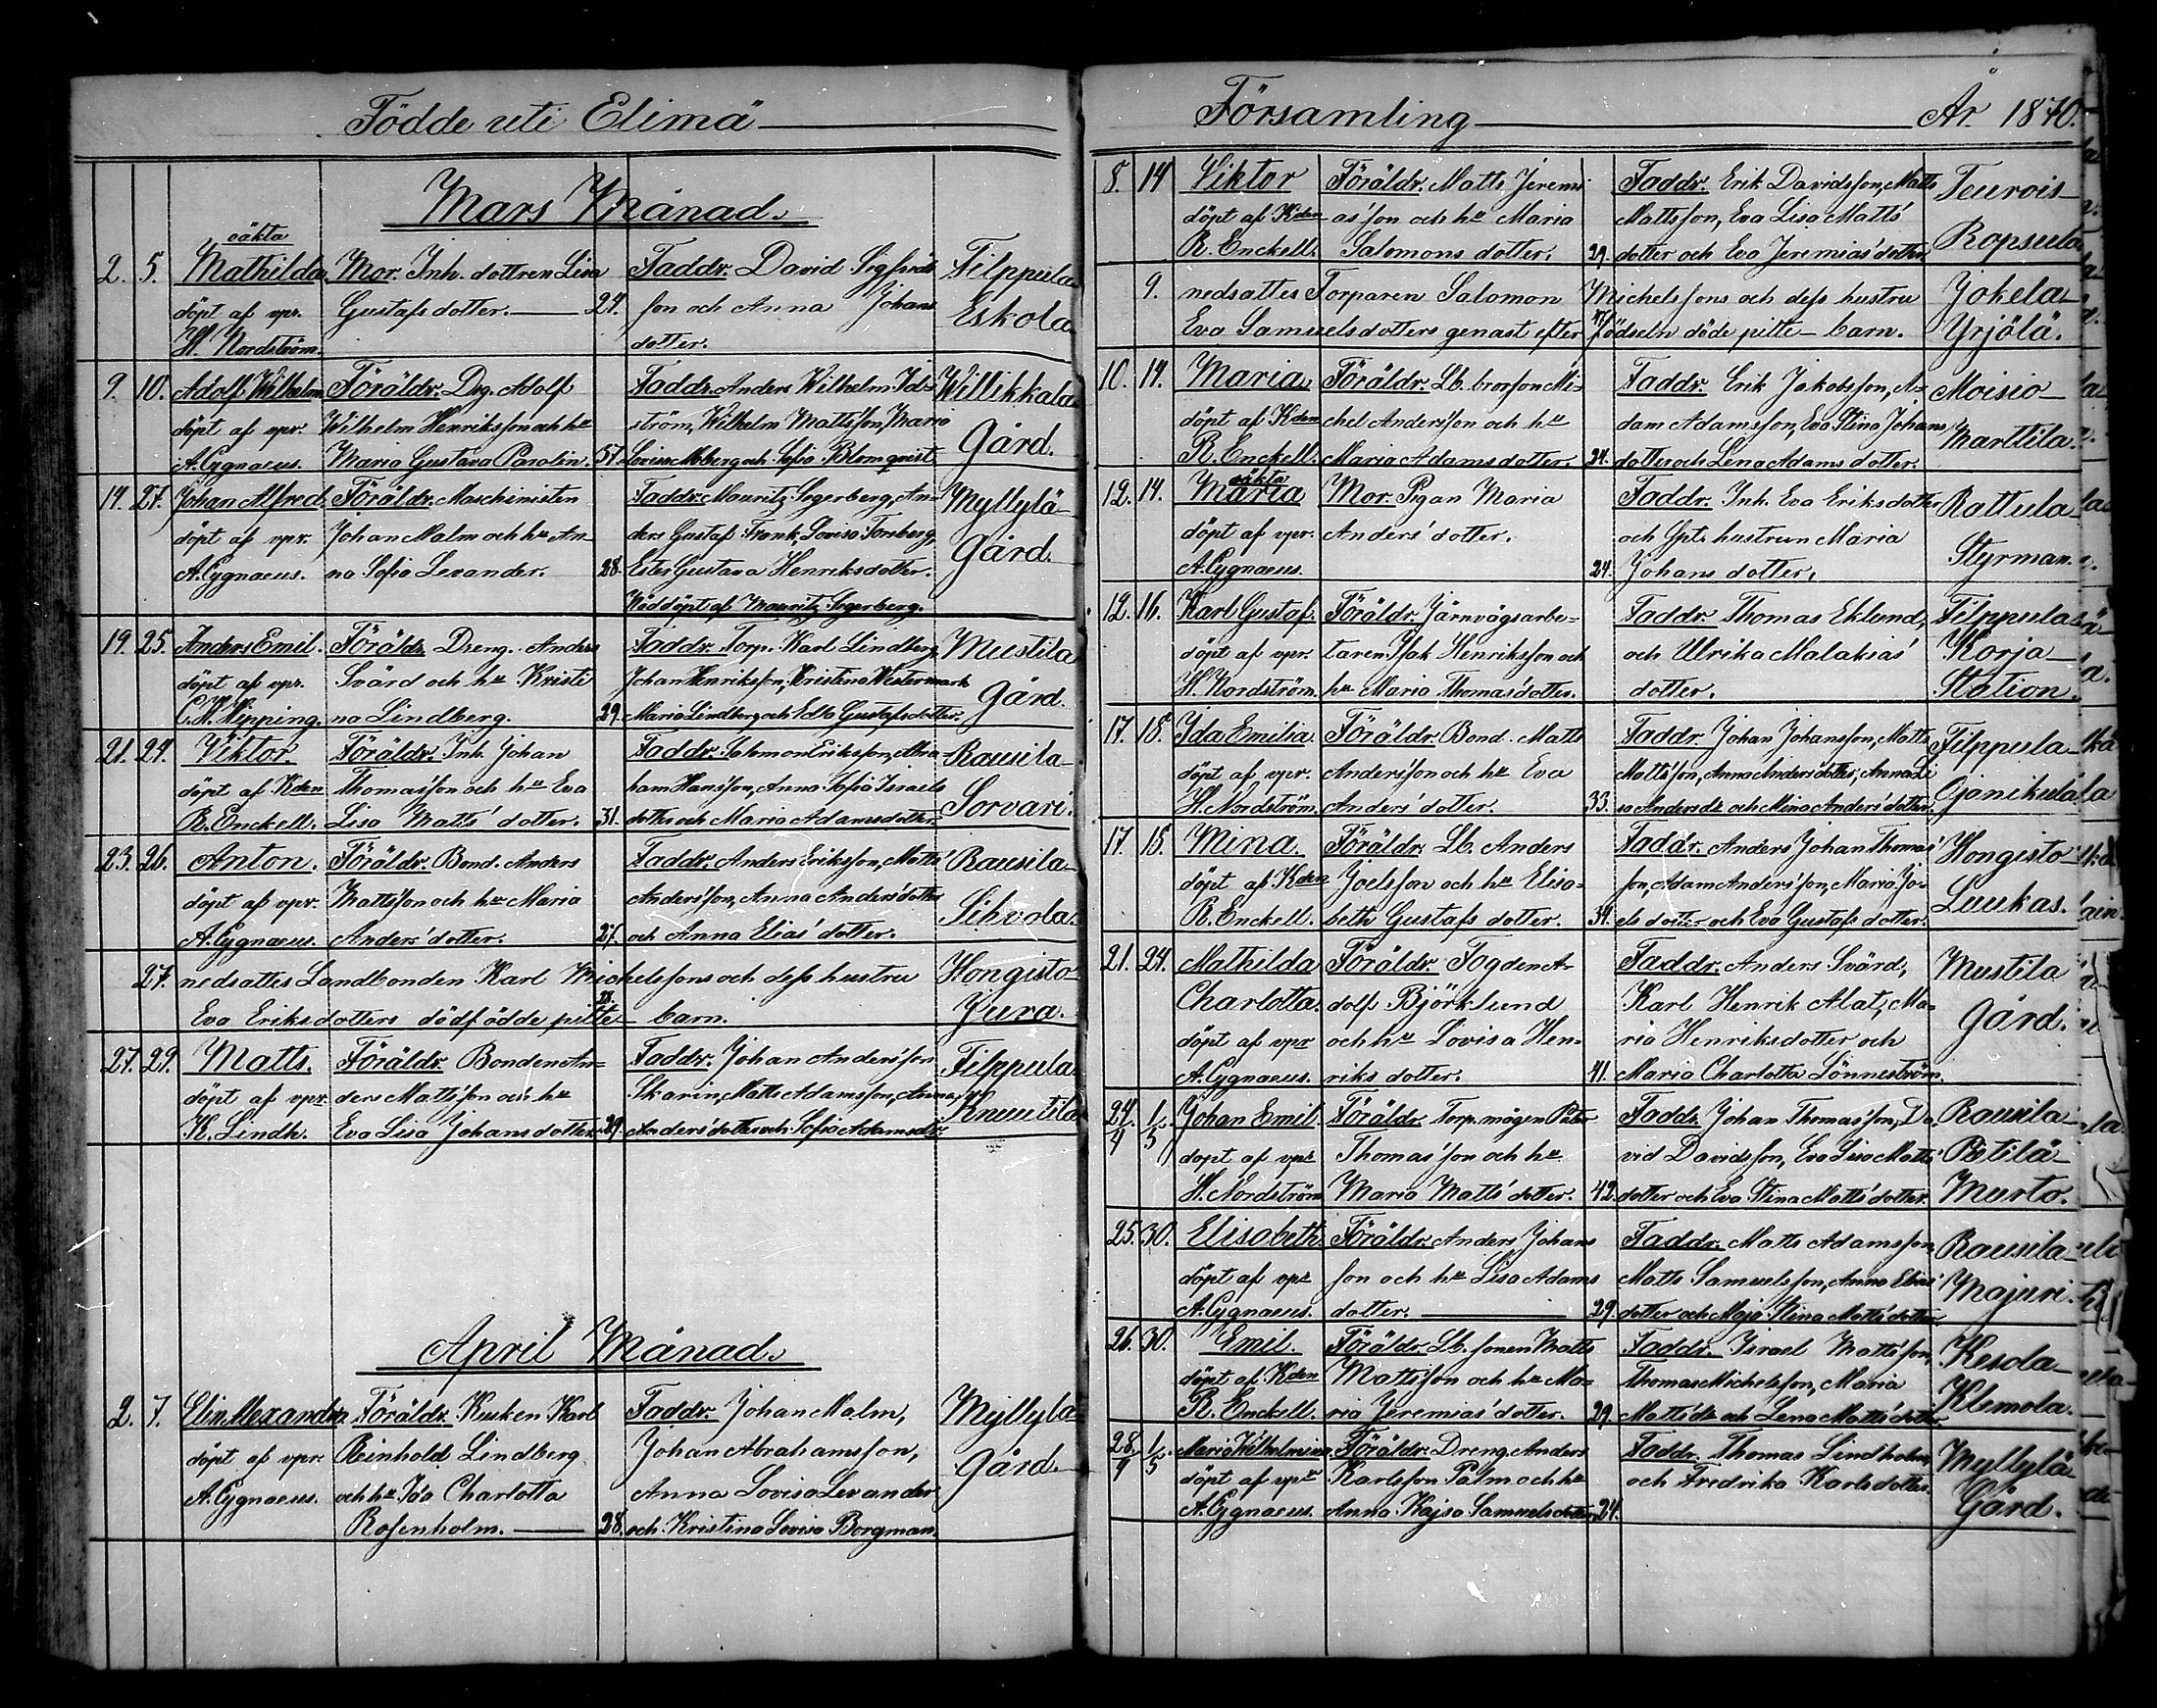 Födde uti Elimä
Mars Månad.
oäkta
2. 5. Mathilda Mor. Inh. dottren Lisa Faddr. David Sigfrids Filppula
döpt af vpr. Gustafs dotter. 24. son och Anna Johans Eskola
H. Nordström. dotter.
9. 10. Adolf Wilhelm Föräldr. Drg. Adolf Faddr. Anders Wilhelm Id- Willikkala
döpt af vpr. Wilhelm Henriksson och hu ström, Wilhelm Mattsson, Maria Gård.
A. Cygnaeus. Maria Gustava Parolin. 57. Lovisa Moberg och Sofia Blomqvist
14. 27. Johan Alfred. Föräldr. Maschinisten Faddr. Mauritz Segerberg, An- Myllylä
döpt af vpr. Johan Malm och hu An- ders Gustaf Frank, Lovisa Forsberg Gård.
A. Cygnaeus. na Sofia Levander. 28. Ester Gustava Henriksdotter.
Nöddöpt af Mauritz Segerberg.
19. 25. Anders Emil. Föräldr. Dreng. Anders Faddr. Torp. Karl Lindberg, Mustila
döpt af vpr. Svärd och hu Kristi Johan Henriksson, Kristina Westermark Gård.
C. H. Hipping. na Lindberg. 29. Maria Lindberg och Edla Gustafsdotter.
21. 24. Viktor. Föräldr. Inh. Johan Faddr. Salomon Eriksson, Abra- Rausila-
döpt af Kden Thomasson och hu Eva ham Hansson, Anna Sofia Israels Sorvari.
R. Enckell. Lisa Matts' dotter. 31. dotter och Maria Adamsdotter
23. 26. Anton. Föräldr. Bond. Anders Faddr. Anders Eriksson, Matts Rausila-
döpt af vpr. Mattsson och hu Maria Andersson, Anna Anders' dotter Sihvola.
A. Cygnaeus. Anders' dotter. 27. och Anna Elias' dotter.
27. nedsattes Landbonden Karl Michelssons och dess hustru Hongisto-
Eva Eriksdotters dödfödde pilte- barn. 28. Jura.
27. 29. Matts. Föräldr. Bonden An- Faddr. Johan Andersson Filppula
döpt af vpr. ders Mattsson och hu Skarin, Matts Adamsson, Anna Knuutila
K. Lindh. Eva Lisa Johansdotter. 29. Anders' dotter och Sofia Adamsdtr.
April Månad.
2. 7. Elin Alexandra Föräldr. Kusken Karl Faddr. Johan Malm, Myllylä
döpt af vpr. Reinhold Lindberg Johan Abrahamsson, Gård.
A. Cygnaeus. och hu Ida Charlotta Anna Lovisa Levander
Rosenholm. 28. och Kristina Lovisa Borgman.
Församling År 1870.
8. 14 Viktor Föräldr. Matts Jeremi Faddr. Erik Davidsson, Matts Teurois-
döpt af Kden as' son och hu Maria Mattsson, Eva Lisa Matts' Ropsula
R. Enckell. Salomons dotter. 29. dotter och Eva Jeremias' dotter
9. nedsattes Torparen Salomon Michelssons och dess hustru Jokela-
Eva Samuelsdotters genast efter födseln döde pilte- barn. Yrjölä.
10. 14. Maria Föräldr. Lb. brorson Mi- Faddr. Erik Jakobsson, A- Moisio-
döpt af Kden chel Andersson och hu dam Adamsson, Eva Stina Johans Marttila.
R. Enckell. Maria Adams dotter. 24. dotter och Lena Adams dotter.
oäkta
12. 14. Maria Mor. Pigan Maria Faddr. Inh. Eva Eriksdotter Rattula-
döpt af vpr. Anders' dotter. och Gpt. hustrun Maria Styrman.
A. Cygnaeus. 24. Johans dotter.
12. 16. Karl Gustaf. Föräldr. Järnvägsarbe- Faddr. Thomas Eklund, Filppula
döpt af vpr. taren Isak Henriksson och och Ulrika Malakias' Korja-
H. Nordström. hu Maria Thomas' dotter. dotter. Station.
17. 18. Ida Emilia. Föräldr. Bond. Matts Faddr. Johan Johansson, Matts Filppula-
döpt af vpr. Andersson och hu Eva Mattsson, Anna Anders' dotter, Anna Li Ojanikula
H. Nordström. Anders' dotter. 33. sa Andersdr och Mina Anders' dotter.
17. 18. Mina. Föräldr. Lb. Anders Faddr. Anders Johan Thomas' Hongisto
döpt af Kden Joelsson och hu Elisa- son, Adam Andersson, Maria Jo- Luukas.
R. Enckell. beth Gustafs dotter. 34. els dotter och Eva Gustafs dotter.
21. 24. Mathilda Föräldr. Fogden A- Faddr. Anders Svärd, Mustila
Charlotta. dolf Björklund Karl Henrik Alat, Ma- Gård.
döpt af vpr och hu Lovisa Hen- ria Henriksdotter och
A. Cygnaeus. riks dotter. 41. Maria Charlotta Lönneström.
24/4 1/5 Johan Emil. Föräldr. Torp. mågen Peter Faddr. Johan Thomasson, Da Rausila-
döpt af vpr Thomas' son och hu vid Davidsson, Eva Lisa Matts' Petilä-
H. Nordström Maria Matts' dotter. 42. dotter och Eva Stina Matts' dotter. Murto.
25. 30. Elisabeth. Föräldr. Anders Johans Faddr. Matts Adamsson, Rausila-
döpt af vpr son och hu Lisa Adams Matts Samuelsson, Anna Elias' Majuri.
A. Cygnaeus. dotter. 29. dotter och Maja Stina Matts' dotter
26. 30. Emil. Föräldr. Lb. sonen Matts Faddr. Israel Mattsson, Kesola-
döpt af Kden Mattsson och hu Ma- Thomas Michelsson, Maria Klemola.
R. Enckell. ria Jeremias' dotter. 29. Matts' dr och Lena Matts' dotter.
28/4 1/5 Maria Wilhelmina Föräldr. Dreng. Anders Faddr. Thomas Lindholm, Myllylä
döpt af vpr Karlsson Palm och hu och Fredrika Karlsdotter. Gård.
A. Cygnaeus. Anna Kajsa Samuelsdotter. 24.